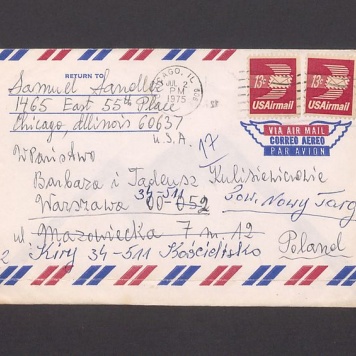 RETURN TO
Samuel Sandler
1465 East 55th Place
Chicago, Illinois 60637
U.S.A.
CHICAGO, IL
JUL 2
PM
1975
13c
USAirmail
13c
USAirmail
VIA AIR MAIL
CORREO AEREO
PAR AVION
WPaństwo
17
Barbara i Tadeusz Kulisiewiczowie
34-511
Warszawa 00-052 Pow. Nowy Targ
ul Mazowiecka 7 m. 12
Kiry 34-511 Kościelisko Poland